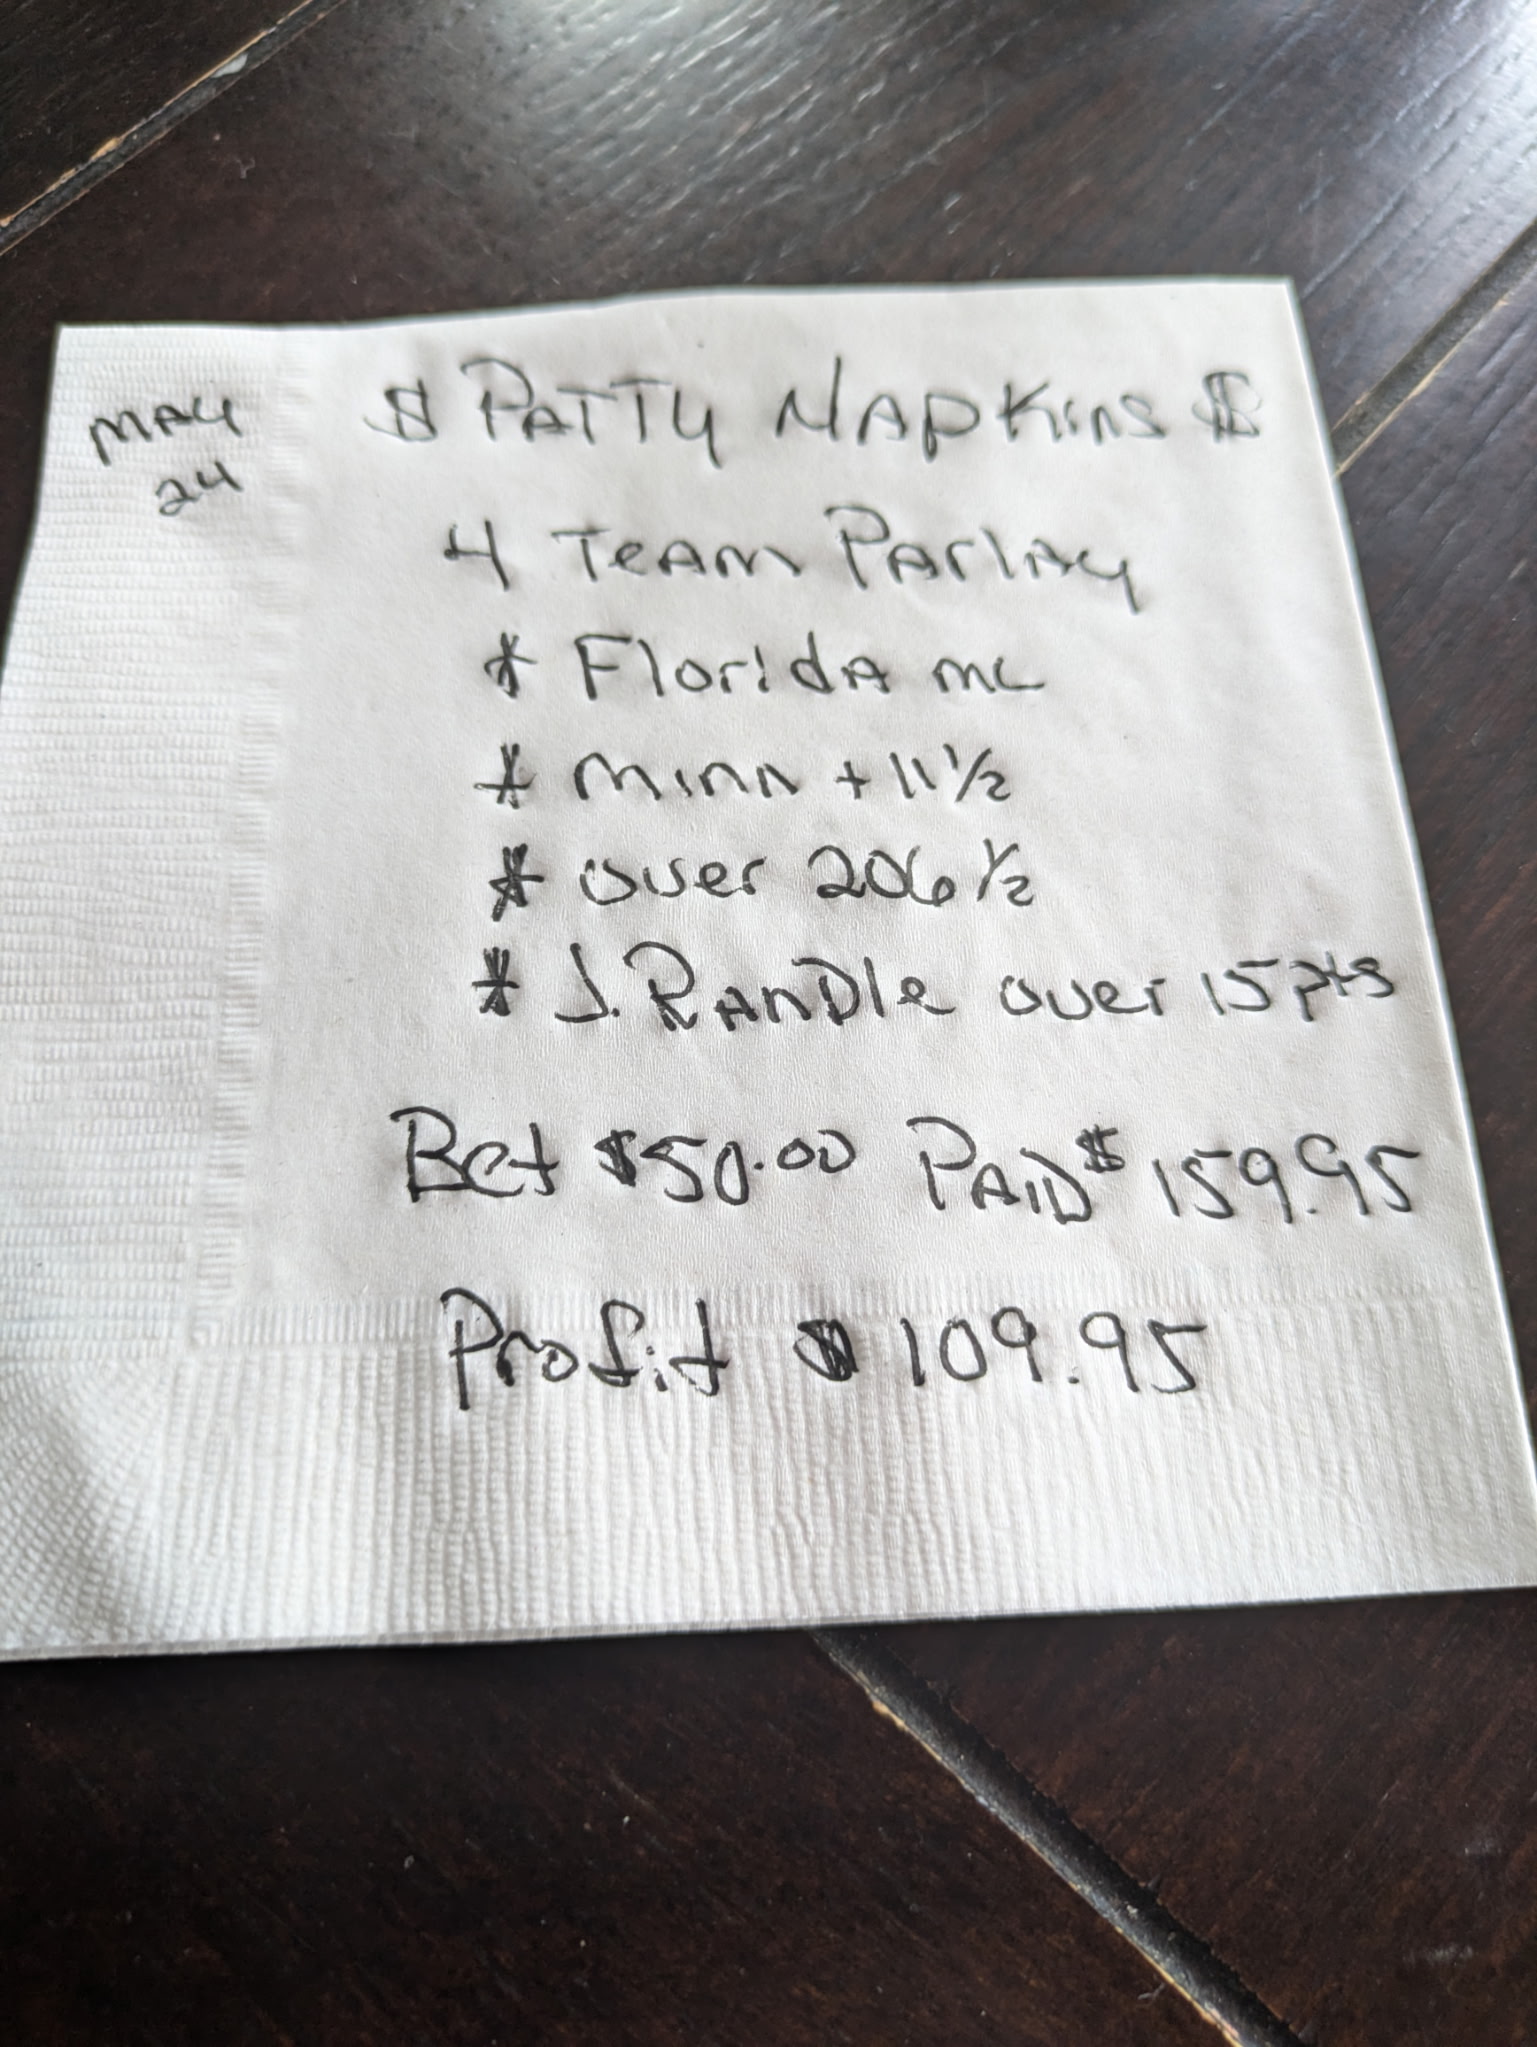 MAY
24
$ PATTY NAPKins $
4 TeAm PArlAy
* FloridA ML
* Minn + 11 1/2
* over 206 1/2
* J. RAnDle over 15 pts
Bet $50.00 PAID $159.95
Profit $ 109.95